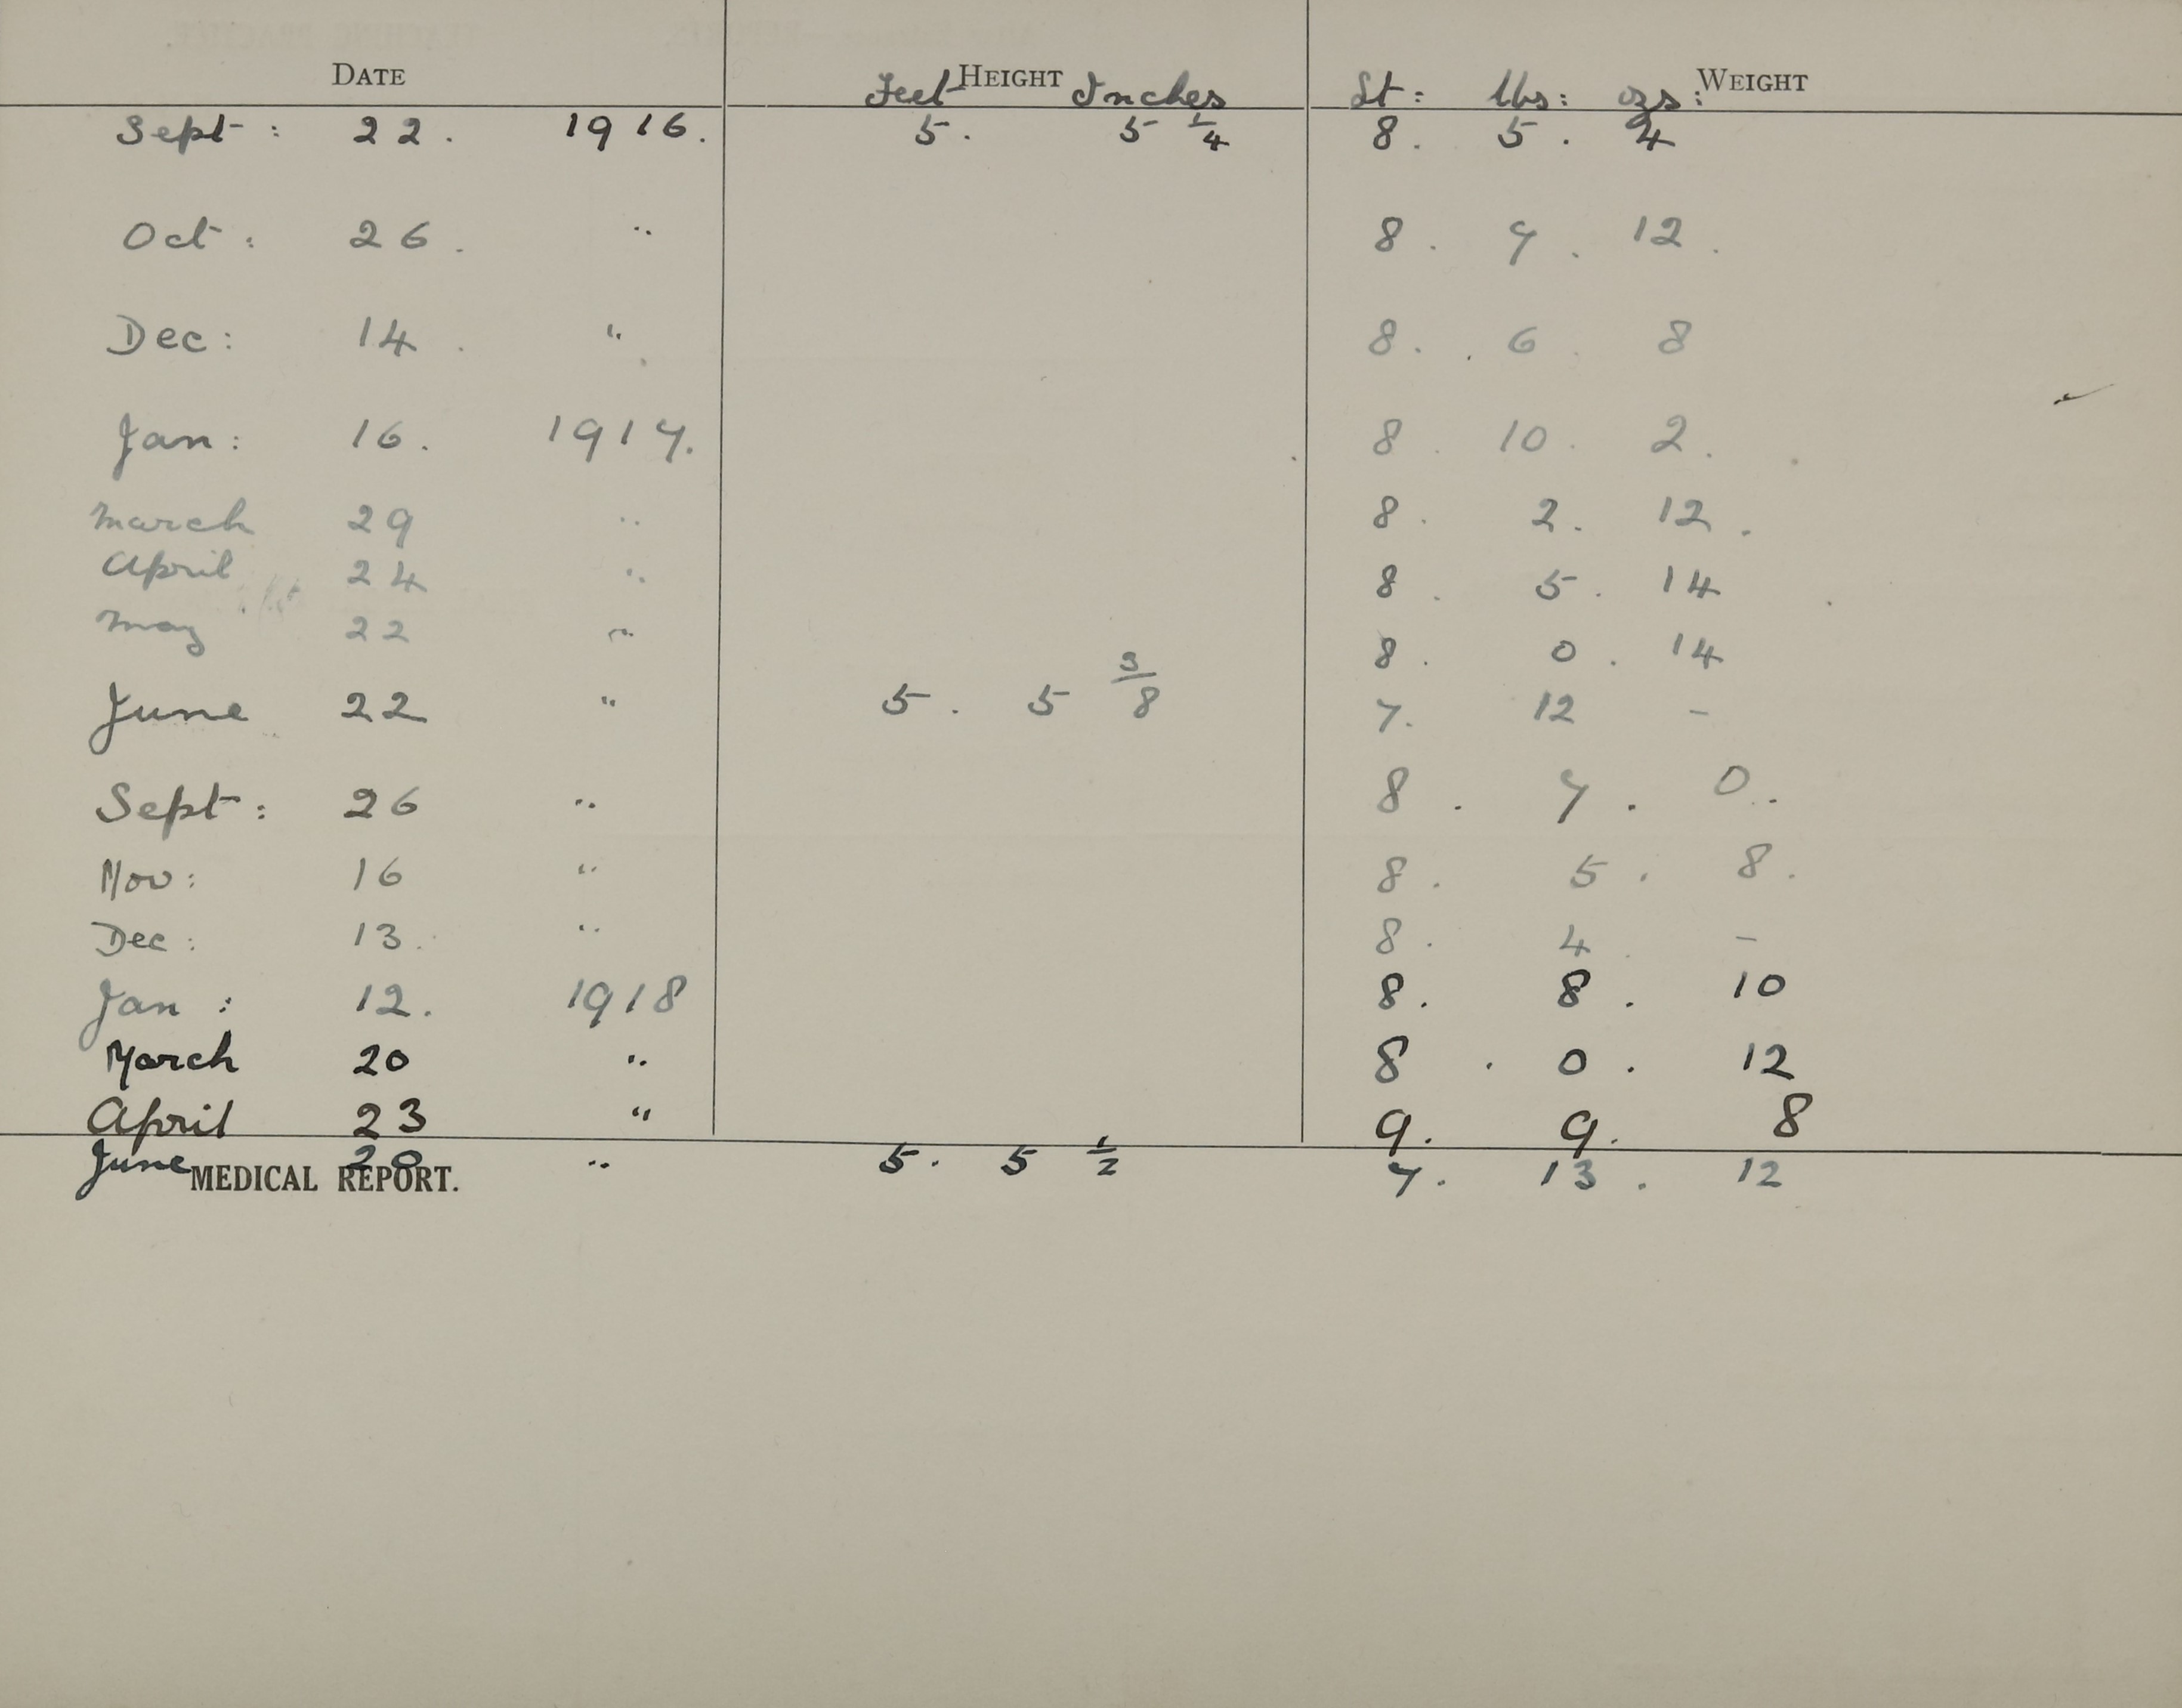 DATE HEIGHT WEIGHT
Feet Inches St: lbs: ozs:
Sept: 22. 1916. 5. 5 1/4 8. 5. 4
Oct: 26. " 8. 7. 12.
Dec: 14. " 8. 6. 8
Jan: 16. 1917. 8. 10. 2.
March 29 " 8. 2. 12.
April 24 " 8. 5. 14
May 22 " 8. 0. 14
June 22 " 5. 5 3/8 7. 12 -
Sept: 26 " 8. 7. 0.
Nov: 16 " 8. 5. 8.
Dec: 13. " 8. 4. -
Jan: 12. 1918 8. 8. 10
March 20 " 8. 0. 12
April 23 " 9. 9. 8
June 20 " 5. 5 1/2 7. 13. 12
MEDICAL REPORT.